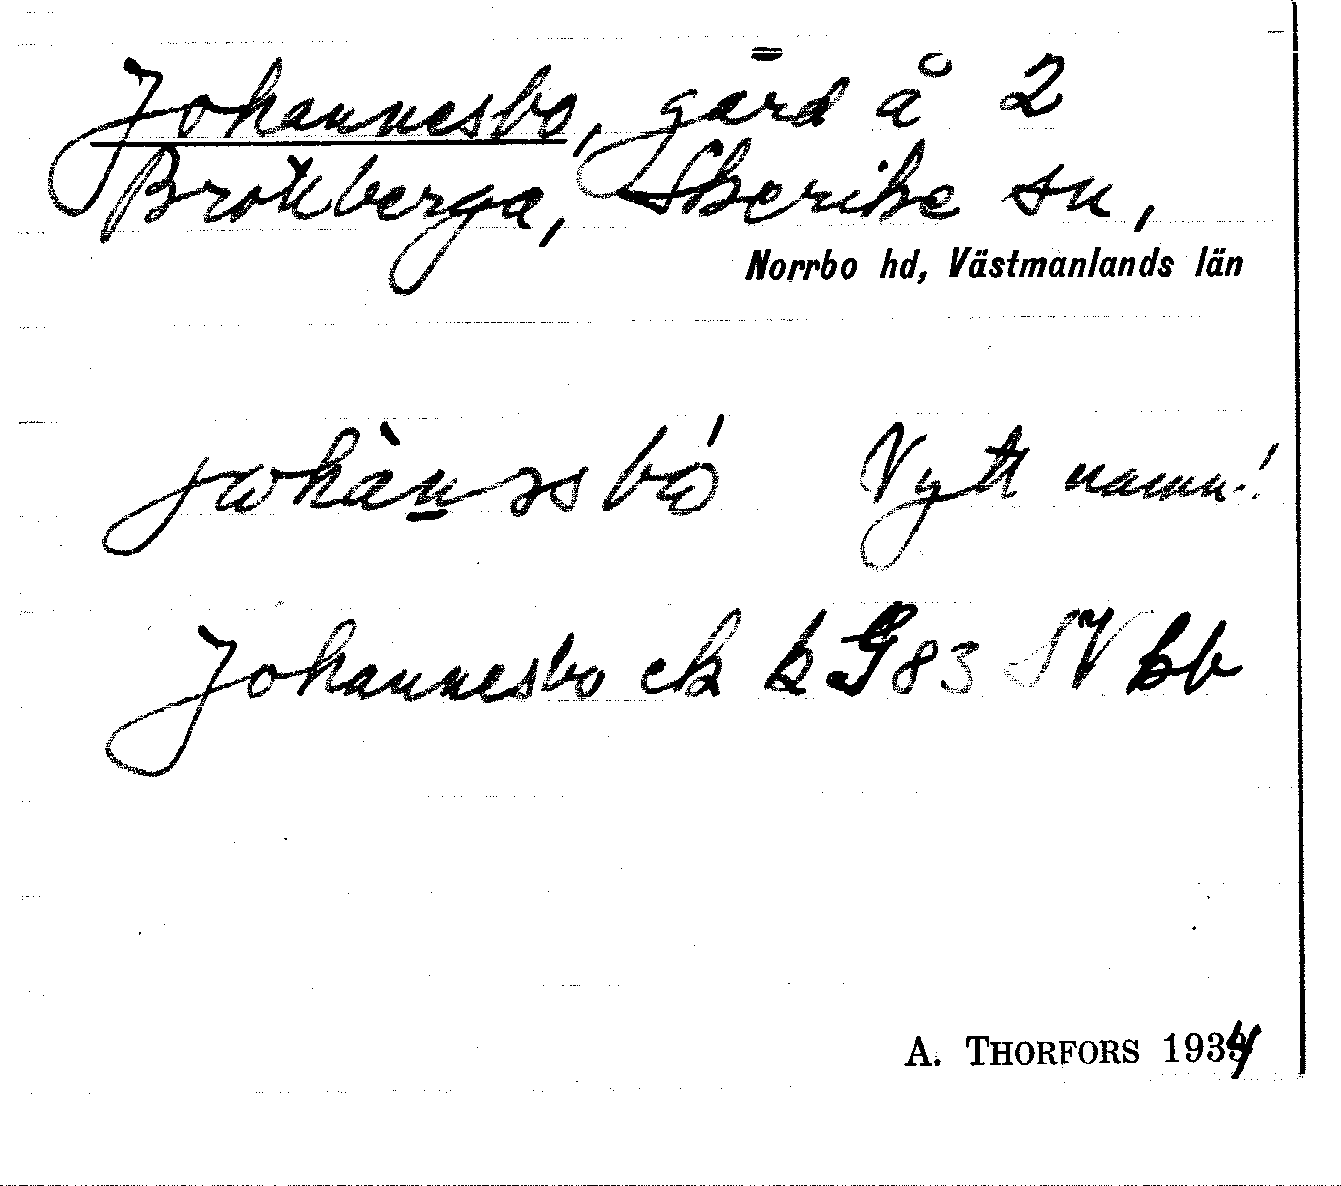 Johannesbo, gård å 2
Brottberga, Skerike sn,
Norrbo hd, Västmanlands län
Nytt namn!
Johannesbo ek k G 83 SV bb
A. THORFORS 1934